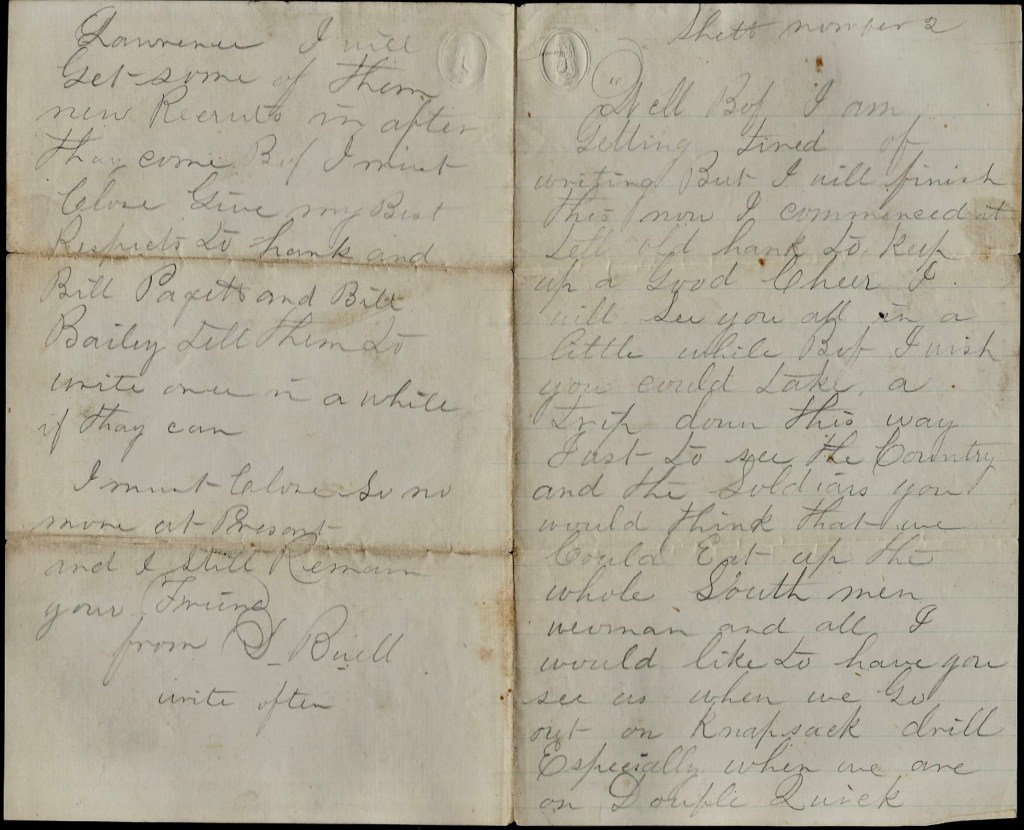 Shett nomper 2
Well Bof I am
Getting tired of
writing But I will finish
this now I commenced it
tell old hank to keep
up a Good Cheer I
will see you all in a
little while Bof I wish
you could take a
trip down this way
Just to see the Country
and the Soldiars you
would think that we
Could Eat up the
whole South men
weoman and all I
would like to have you
see us when we Go
out on Knapsack drill
Especially when we are
on Douple Quick
Lawrence I will
Get some of them
new Recruts in after
thay come Bof I must
Close Give my Best
Respects to hank and
Bill and Bill
Bailey tell them to
write once in a while
if thay can
I must Close So no
more at Presant
and I Still Remain
your Friend
from D Buell
write often